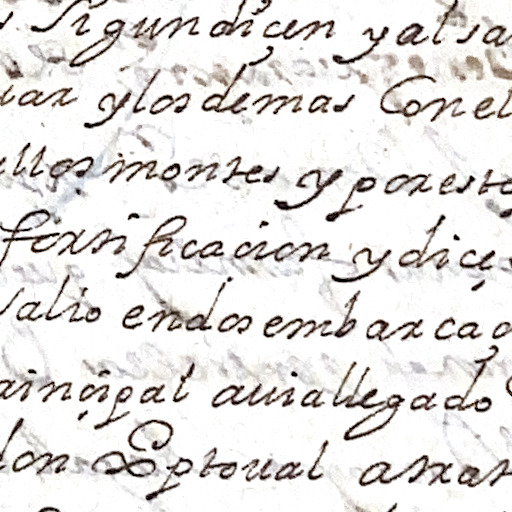 sigun diçen y al sa
iar y los demas Con el
ellos montes y por esto
fortificacion y diçe
salio en dos embarcaç
rinçipal auia llegado
don xptoual a tratar